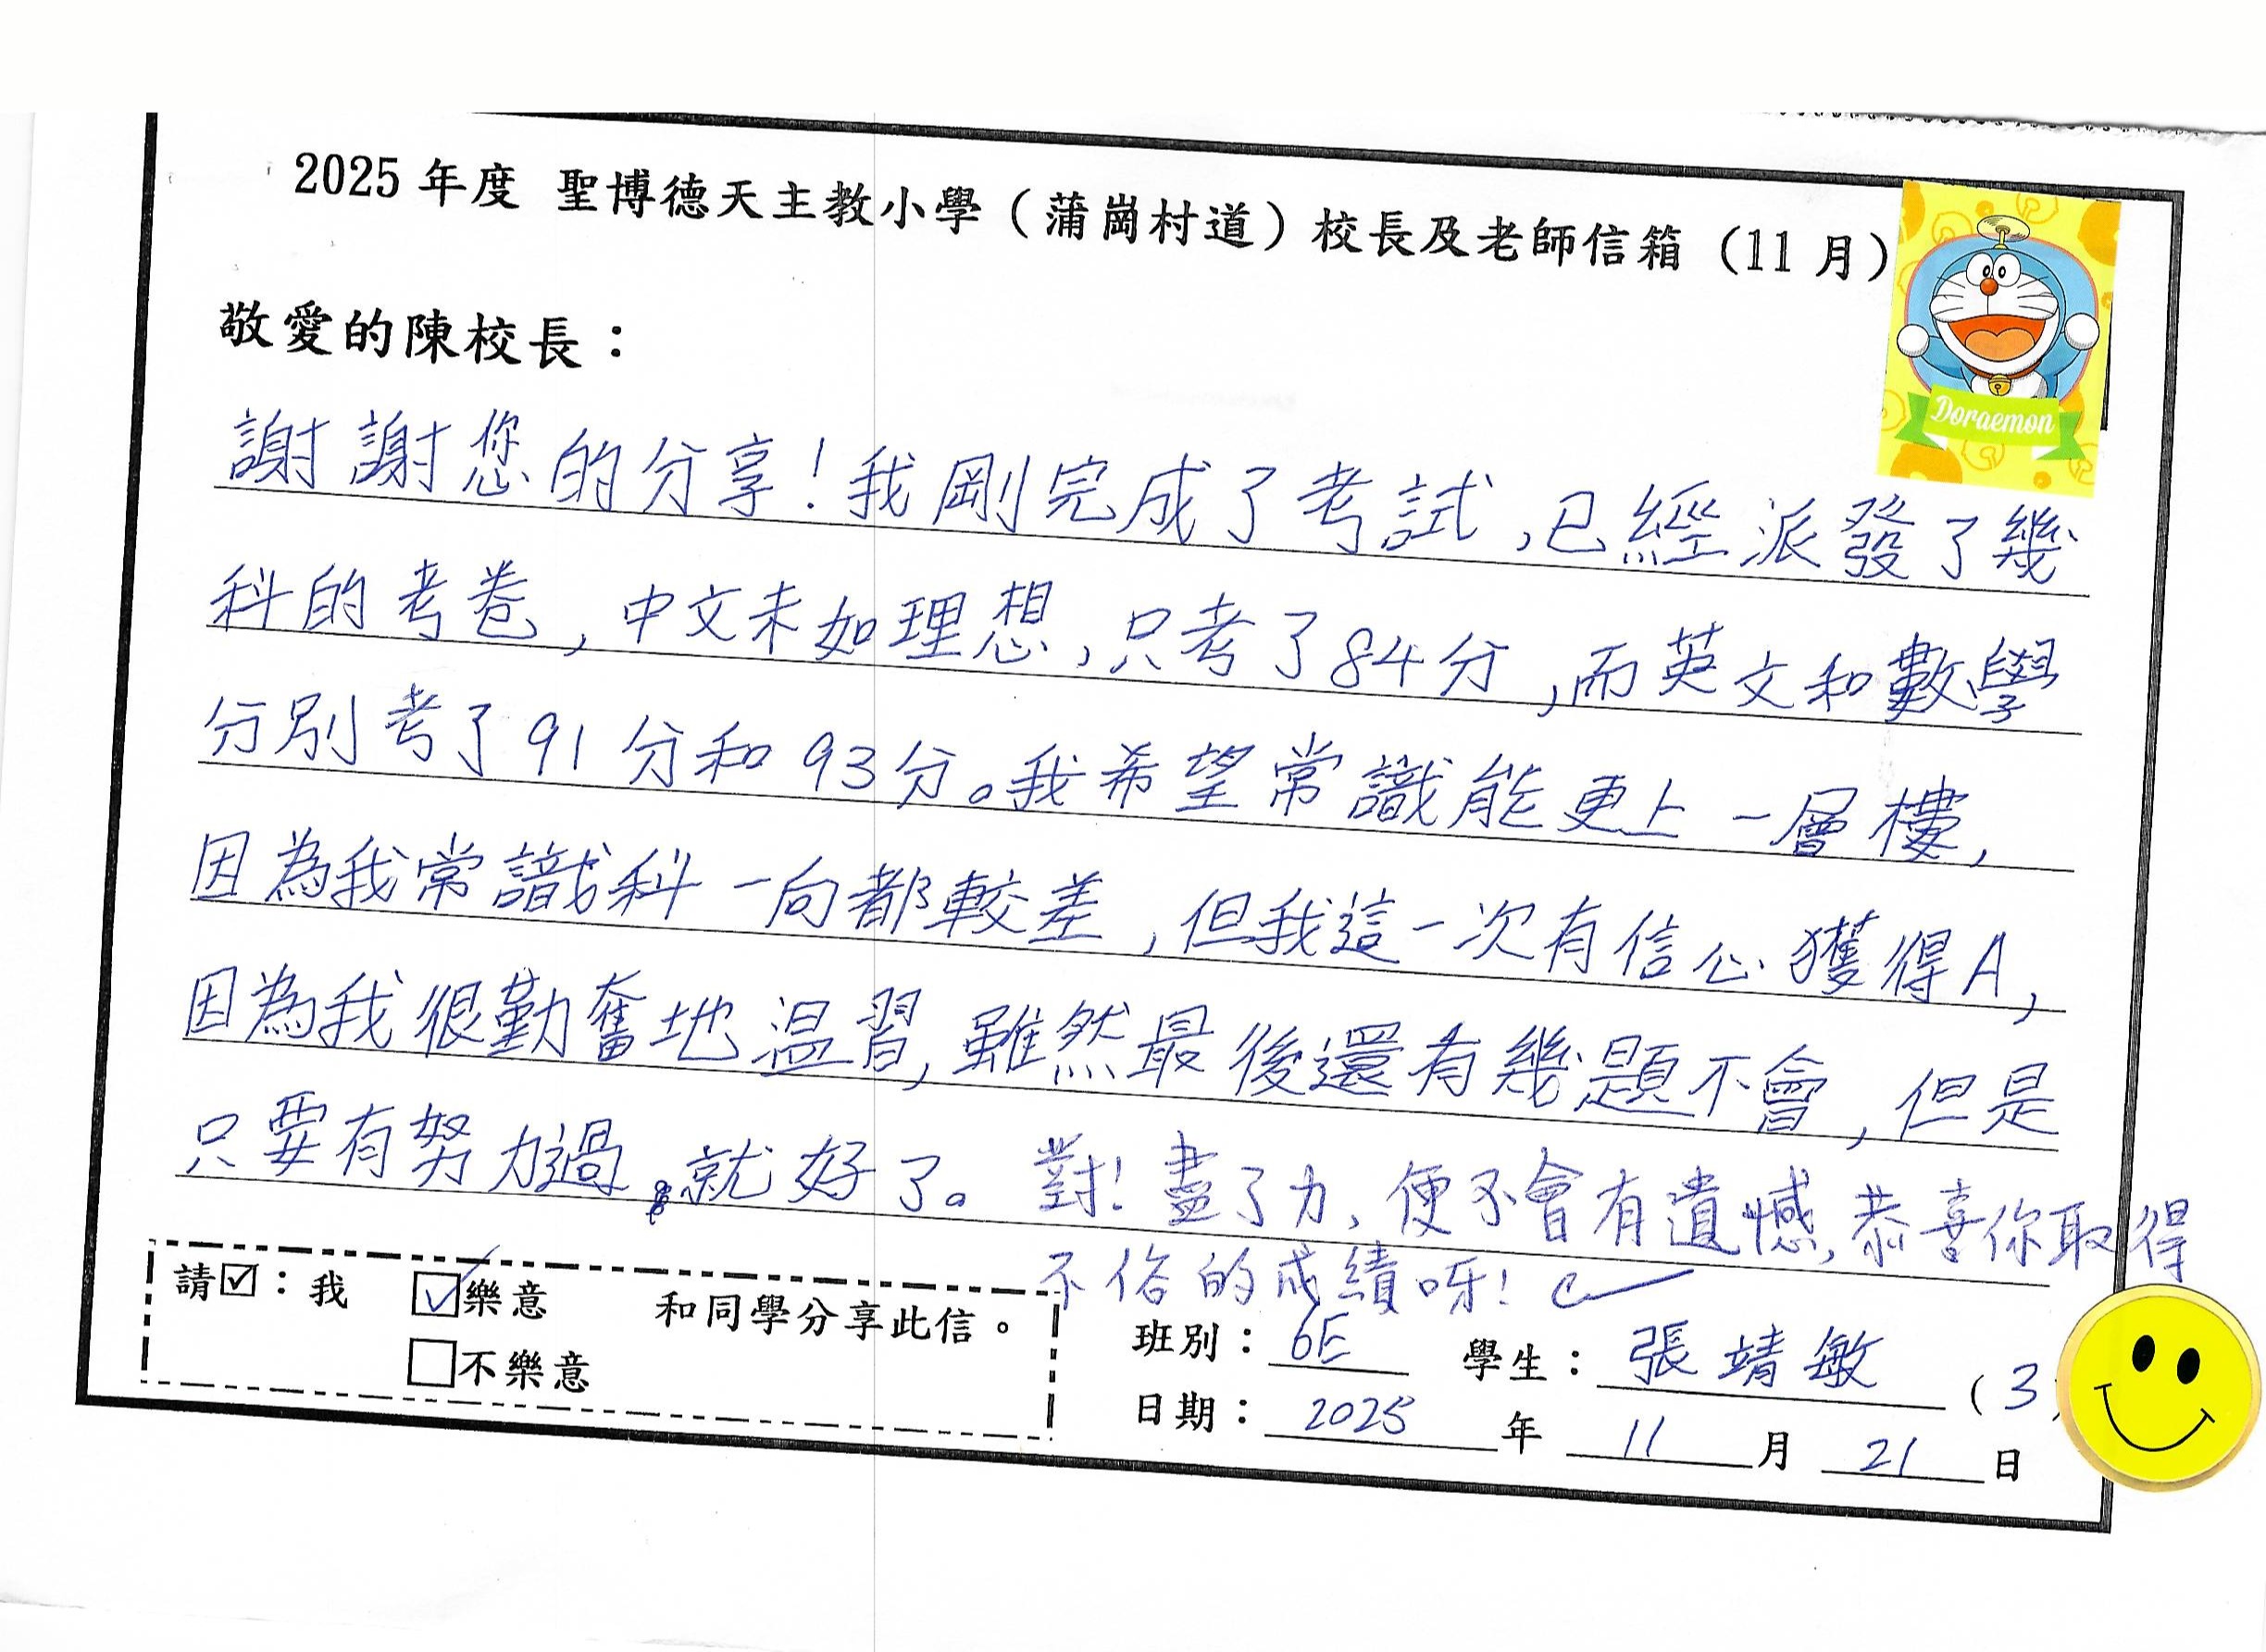 2025 年度 聖博德天主教小學（蒲崗村道）校長及老師信箱（11 月）
Doraemon
敬愛的陳校長：
謝謝您的分享！我剛完成了考試，已經派發了幾
科的考卷，中文未如理想，只考了84分，而英文和數學
分別考了91分和93分。我希望常識能更上一層樓，
因為我常識科一向都較差，但我這一次有信心獲得A，
因為我很勤奮地温習，雖然最後還有幾題不會，但是
只要有努力過，就好了。 對！盡了力，便不會有遺憾，恭喜你取得
不俗的成績呀！
請☑：我 ☑樂意 和同學分享此信。
□不樂意
班別：6E 學生：張靖敏（3）
日期：2025年11月21日